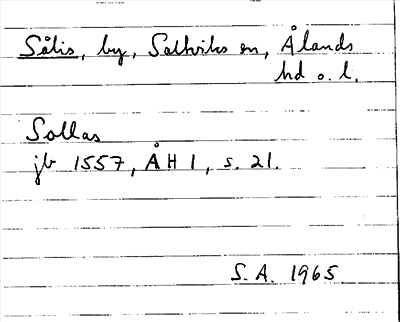 Sålis, by, Saltviks sn, Ålands
hd o. l.
Sollas
jb 1557, ÅH 1, s. 21.
S. A. 1965